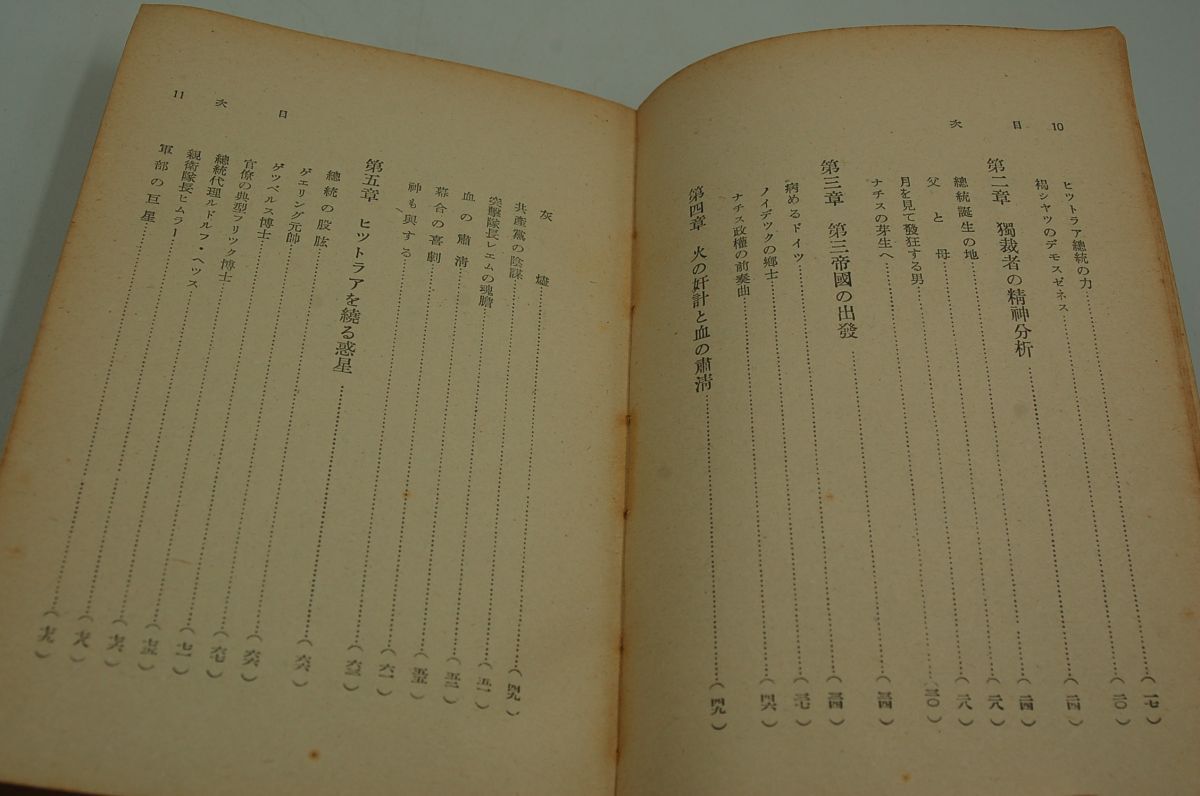 10 目次
ヒツトラア總統の力……(一七)
褐シヤツのデモスゼネス……(二〇)
第二章 獨裁者の精神分析……(二四)
總統誕生の地……(二四)
父と母……(二八)
月を見て發狂する男……(二八)
ナチスの芽生へ……(三〇)
第三章 第三帝國の出發……(三四)
病めるドイツ……(三四)
ノイデツクの郷士……(三七)
ナチス政權の前奏曲……(四六)
第四章 火の奸計と血の肅清……(四九)
目次 11
灰燼……(四九)
共産黨の陰謀……(五一)
突擊隊長レエムの魂膽……(五二)
血の肅清……(五五)
幕合の喜劇……(六一)
神も與する……(六三)
第五章 ヒツトラアを繞る惑星……(六六)
總統の股肱……(六六)
ゲエリング元帥……(六七)
ゲツベルス博士……(七一)
官僚の典型フリツク博士……
總統代理ルドルフ・ヘツス……(七六)
親衛隊長ヒムラー……(七八)
軍部の巨星……(七九)